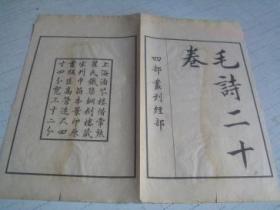 毛詩二十
卷
四部叢刊經部
上海涵芬樓借常熟
瞿氏鐵琴銅劍樓藏
宋刊巾箱本景印原
書版匡高營造尺四
寸四分寬三寸二分